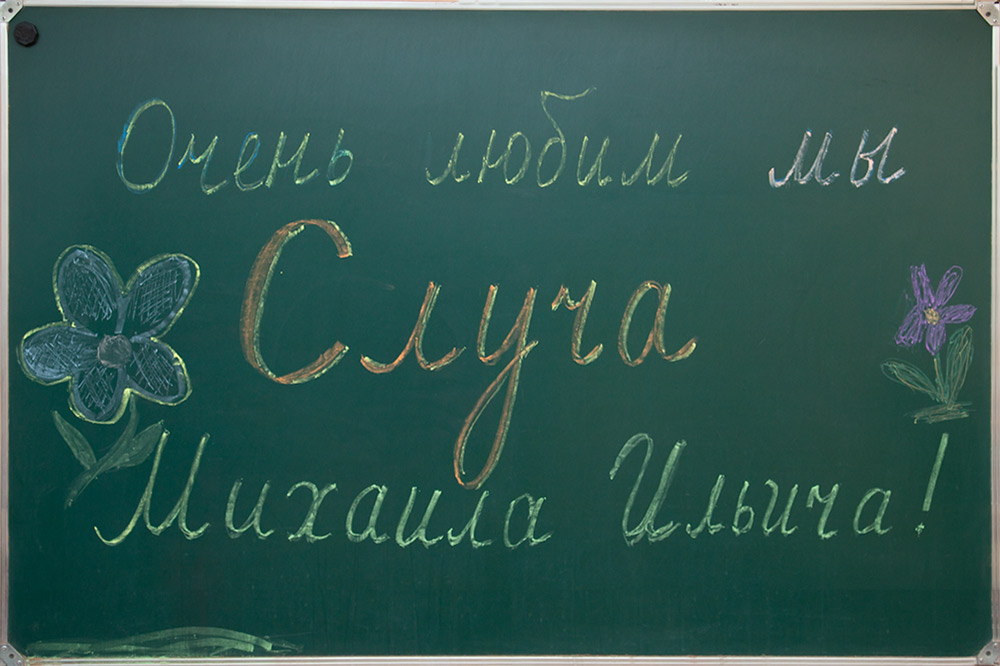 Очень любим мы
Случа
Михаила Ильича!